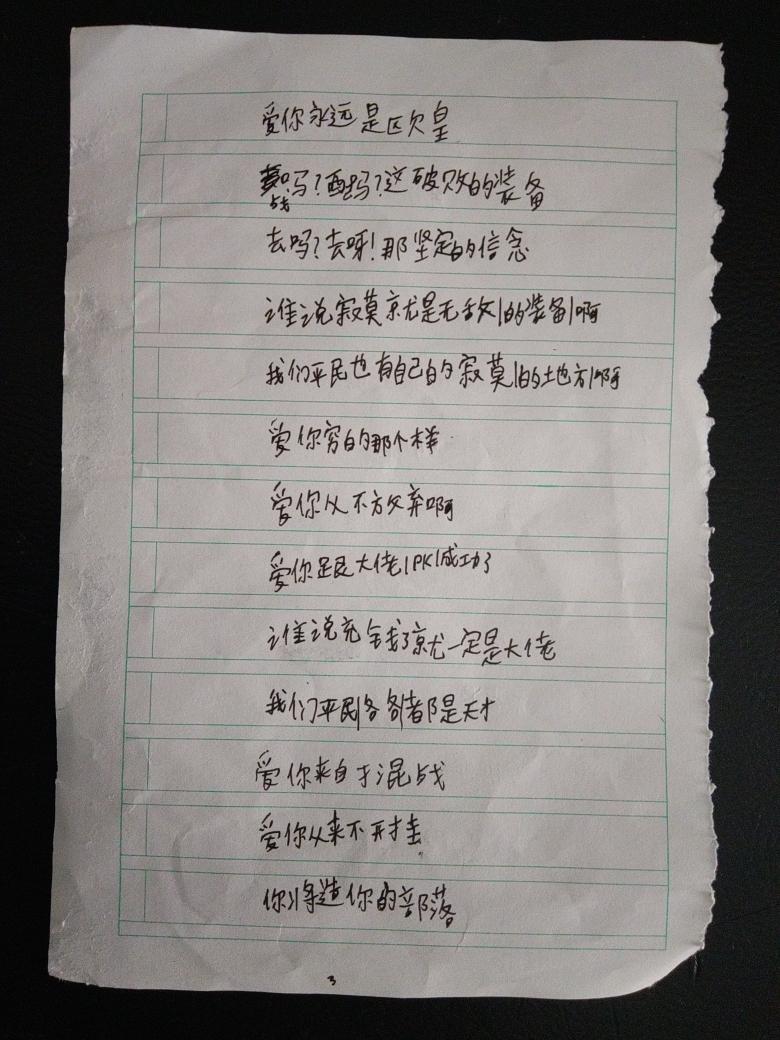 爱你永远是欧皇
战吗?配吗?这破败的装备
去吗?去呀!那坚定的信念
谁说寂莫就是无敌的装备啊
我们平民也有自己的寂莫的地方啊
爱你穷的那个样
爱你从不放弃啊
爱你跟大佬PK成功了
谁说充钱了就一定是大佬
我们平民各各都是天才
爱你来自于混战
爱你从来不开挂
你将造你的部落
3